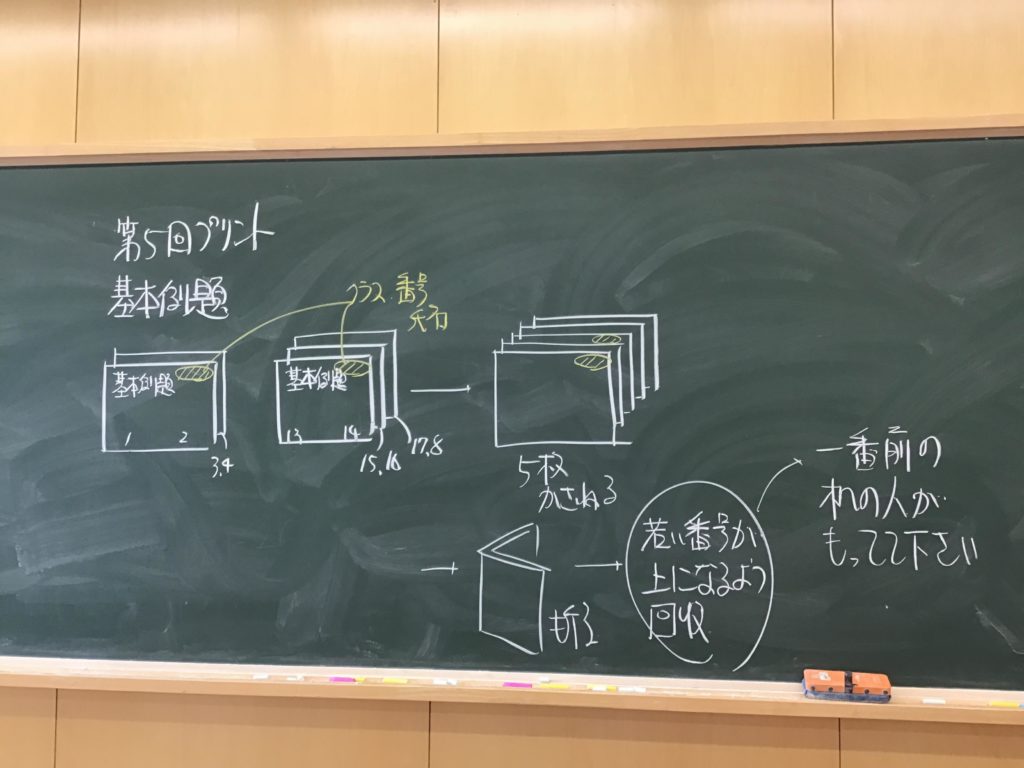 第5回プリント
基本例題
クラス 番号
氏名
基本例題
1 2
3,4
基本例題
13 14
15,16
17,18
5枚
かさねる
折る
若い番号が
上になるよう
回収
一番前の
れの人が
もってて下さい